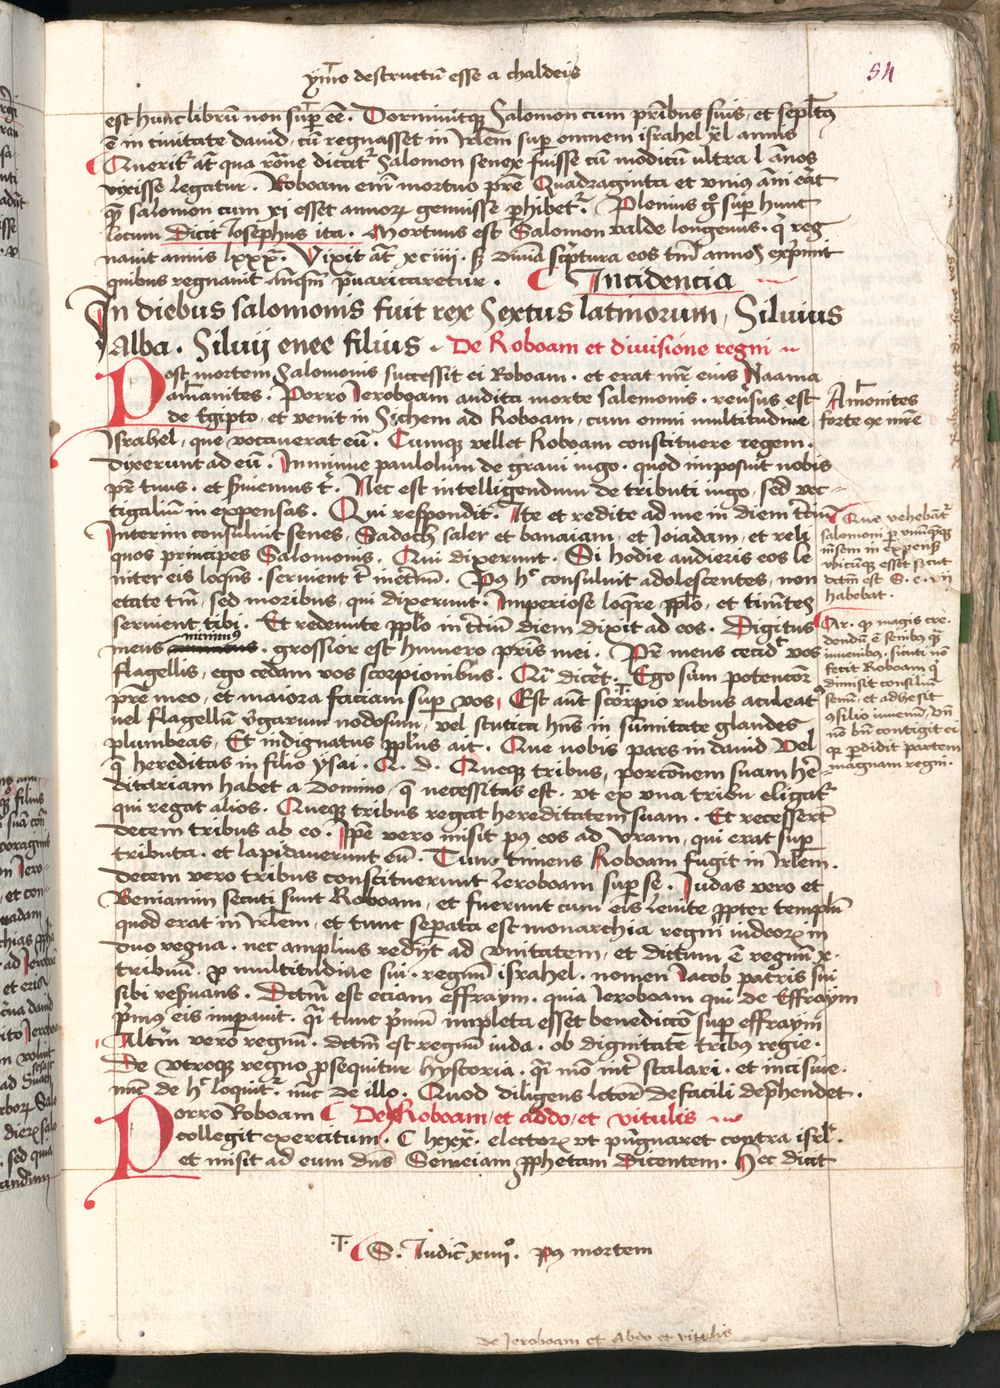 54
ymo destructū esse a chaldeis
est hunc librū non suꝑ eē . Dormiuitqꝫ Salomon cum prībus suis, et sepltꝰ
ē in ciuitate dauid, cū regnasset in Irlem suꝑ omnem israhel xl annis
Querit̄ at̄ qua rōne dicat̄ Salomon senex fuisse cū modicum ultra l ānos
vixisse legatur . Roboam eni mortuo prē Quadraginta et vniꝰ āni erāt
salomon cum xi esset annoꝝ genuisse ꝑhibet̄ . Plenius suꝑ hunc
locum Dicit Iosephus ita . Mortuus est Salomon valde longeuus . reg
nauit annis lxxx . Vixit at̄ xciiii . sꝫ diuīa scptura eos tm̄ annos expimit
quibus regnauit anꝙ̄ pͣuaricaretur . Incidencia
In diebus salomonis fuit rex Sextus latinorum, Siluius
Alba . Siluij enee filius . De Roboam et diuisione regni
Post mortem Salomonis successit ei Roboam . et erat mr̄ eius Naama
amanites . Porro Ieroboam audita morte salemonis . reūsus est
de Egipto, et venit in Sichem ad Roboam, cum omni multitudine
Israhel, que vocauerat eū . Cumqꝫ vellet Roboam constituere regem .
dixerunt ad eū . Inminue paulolum de graui iugo . quod imposuit nobis
pr̄ tuus . et suiemus t̄ . Nec est intelligendum de tributi iugo, sed vec-
tigaliū in expensas . Qui respondit . Ite et redite ad me in diem t̄ciū
Interim consuluit senes, Sadoch saler et banaiam, et Ioiadam, et reli
quos principes Salomonis . Qui dixerunt . Si hodie audieris eos le
niter eis loqn̄s . seruient t̄ in et̄nū . Pꝰ h̄ consuluit adolescentes, non
etate tm̄, sed moribus, qui dixerunt . Imperiose loqre pplo, et timētes
seruient tibi . Et redeunte pplo in t̄ciū diem dixit ad eos . Digitus
minimus
meus . grossior est humero pris mei . Pr̄ meus cecidt̄ vos
flagellis, ego cedam vos scorpionibus . Q̄i dicēt . Ego sum potencior
prē meo, et maiora faciam suꝑ vos, Est aut scorpio rubus aculeatꝰ
uel flagellū vgarum nodosum, vel scutica hn̄s in sūmitate glandes
plumbeas, Et indignatus pplūs ait . Que nobis pars in dauid Vel
hereditas in filio ysai . Q. d. Queqꝫ tribus, porconem suam here
ditariam habet a Domino, necessitas est . vt ex vna tribu eligat̄
qui regat alios . Queqꝫ tribus regat hereditatem suam . Et recessert
decem tribus ab eo . Ipē vero misit pꝰ eos ad Vram, qui erat suꝑ
tributa . et lapidauerunt eū . Tunc timens Roboam fugit in Irlem .
decem vero tribus constituerunt Ieroboam suꝑ se . Iudas vero et
Beniamin secuti sunt Roboam, et fuerunt cum eis leuite ꝓpter templū
quod erat in Irlem, et tunc seperata est monarchia regni iudeoꝝ in
duo regna . nec amplius redijt ad vnitatem, et dictum ē regnū x .
tribuū . ꝓ multitudine sui . regnū israhel . nomen Iacob patris sui
sibi resuans . Dctm̄ est eciam effraym . quia Ieroboam qui de Effraym
pmus eis imperauit . qi tunc pmū impleta esset benedictō suꝑ effraym
Altm̄ vero regnū . dctm̄ est regnū iuda . ob dignitatē tribꝰ regie .
De vtroqꝫ regno ꝓsequitur hystoria . qi mō int̄ scalari . et incisiue .
nūc de h̄ loquit̄ . nūc de illo . Quod diligens lector de facili dephendet .
Porro Roboam De Roboam et addo, et vitulis
collegit exercitum . C lxxx . electoꝝ vt pugnaret contra isrl .
et misit ad eum dn̄s Semeiam ꝓphetam Dicentem . Hec dicit
Amonites
forte ex mrē
Que vehebāt̄
salomoni ꝑ vnūqꝫ
mēsem in expensis
vbicūqꝫ esset sicut
dctm̄ est S. c. vii
habebat .
Ar. ꝙ magis cre
dendū ē senibꝰ
iuuenibꝰ . sicuti nō
fecit Roboam
dimisit consiliū
senū, et adhesit
ꝯsilio iuuenū, vn̄
nō bn̄ contigit ei
perdidit partem
magnam regni .
.T. S. Iudic̄ xiiii . pꝰ mortem
de Jeroboam et Abdo et vitulis